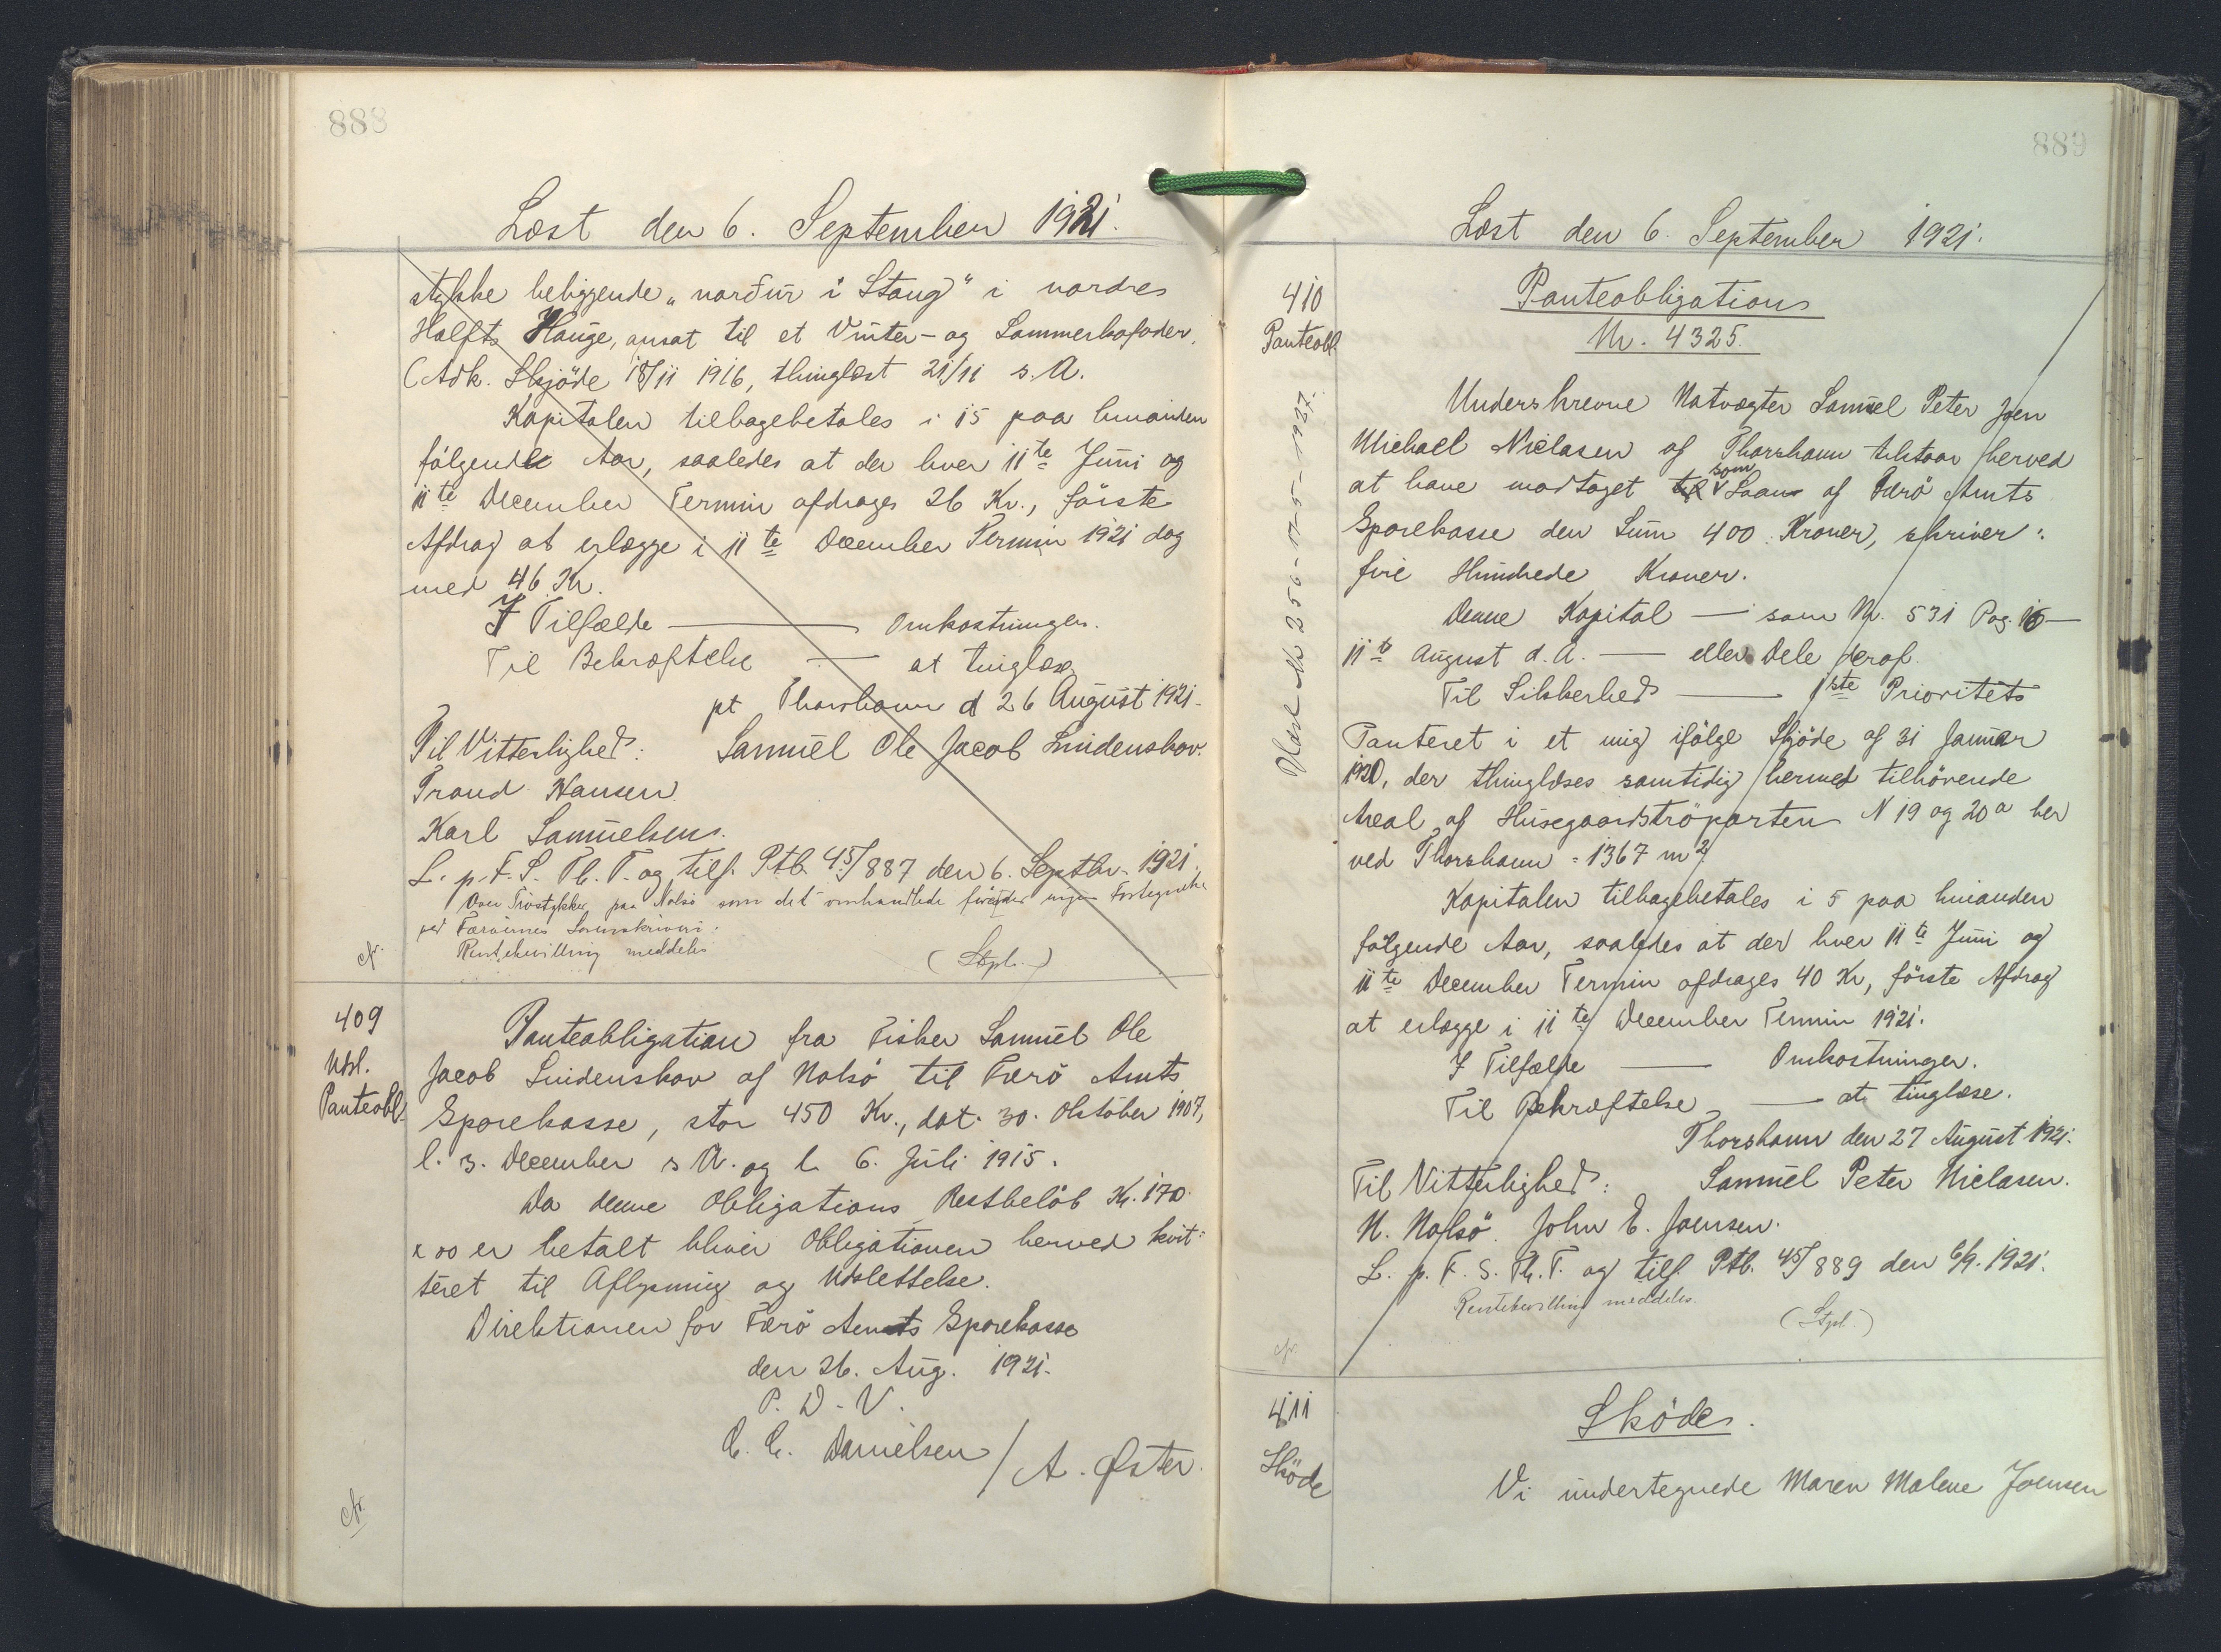 888
Læst den 6. September 1921.
stykke beliggende „norður i Stong" i nordres
Halfts Hauge, ansat til et Vinter- og Sommerkofoder.
(Adk. Skjöde 18/11 1916, thinglæst 21/11 s. A.
Kapitalen tilbagebetales i 15 paa hinanden
følgende Aar, saaledes at der hver 11te Juni og
11te December Termin afdrages 26 Kr., förste
Afdrag at erlægge i 11te December Termin 1921 dog
med 46 Kr.
I Tilfælde — Omkostninger.
Til Bekræftelse — at tinglæse
pt Thorshavn d 26 August 1921.
Til Vitterlighed: Samuel Ole Jacob Lindenskov.
Trond Hansen
Karl Samuelsen.
L. p. F. S. Th. T. og tilf. Ptb. 45/887 den 6. Septbr. 1921.
Over Tröstykker paa Nolsö som det omhandlede föres der ingen Fortegnelse
ved Færöernes Sorenskriveri.
Rentebevilling meddeles
(Stpl.)
cfr.
409
Udsl.
Panteobl.
Panteobligation fra Fisker Samuel Ole
Jacob Lindenskov af Nolsö til Færö Amts
Sparekasse, stor 450 Kr., dat. 30. Oktober 1907,
l. 3. December s A. og l. 6. Juli 1915.
Da denne Obligations Restbelöb Kr. 170
x 00 er betalt bliver Obligationen herved kvit=
teret til Aflysning og Udslettelse.
Direktionen for Færö Amts Sparekasse
den 26. Aug. 1921.
P. D. V.
C. C. Danielsen / A. Øster.
cfr.
889
Læst den 6. September 1921.
410
Panteobl.
Panteobligation
Nr. 4325.
Underskrevne Natvægter Samuel Peter Joen
Michael Niclasen af Thorshavn tilstaar herved
at have modtaget til som Laan af Færö Amts
Sparekasse den Sum 400 Kroner, skriver:
fire Hundrede Kroner.
Denne Kapital — som Nr. 531 Pag. 16 —
11te August d. A. — eller Dele deraf.
Til Sikkerhed — 1ste Prioritets
Panteret i et mig ifölge Skjöde af 31 Januar
1920, der thinglæses samtidig hermed tilhörende
Areal af Husegaardströparten N 19 og 20a her
ved Thorshavn = 1367 m2.
Kapitalen tilbagebetales i 5 paa hinanden
følgende Aar, saaledes at der hver 11te Juni og
11te December Termin afdrages 40 Kr, förste Afdrag
at erlægge i 11te December Termin 1921.
I Tilfælde — Omkostninger.
Til Bekræftelse — at tinglæse.
Thorshavn den 27 August 1921.
Til Vitterlighed: Samuel Peter Niclasen.
N. Nolsö. John E. Joensen.
L. p. F. S. Th. T. og tilf. Ptb. 45/889 den 6/9. 1921.
Rentebevilling meddeles.
(Stpl.)
cfr.
411
Sköde
Sköde.
Vi undertegnede Maren Malene Joensen